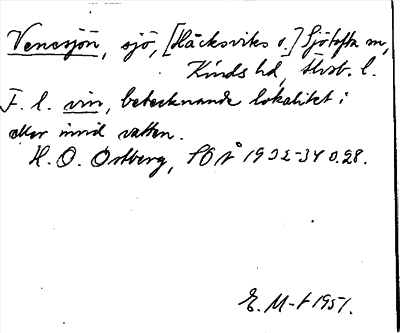 Venesjön, sjö, [Håcksviks o.] Sjötofta sn,
Kinds hd, Älvsb. l.
F. l. vin, betecknande lokalitet i
eller invid vatten.
H. O. Ostberg, 1932-34 s. 28.
E. M-t 1951.